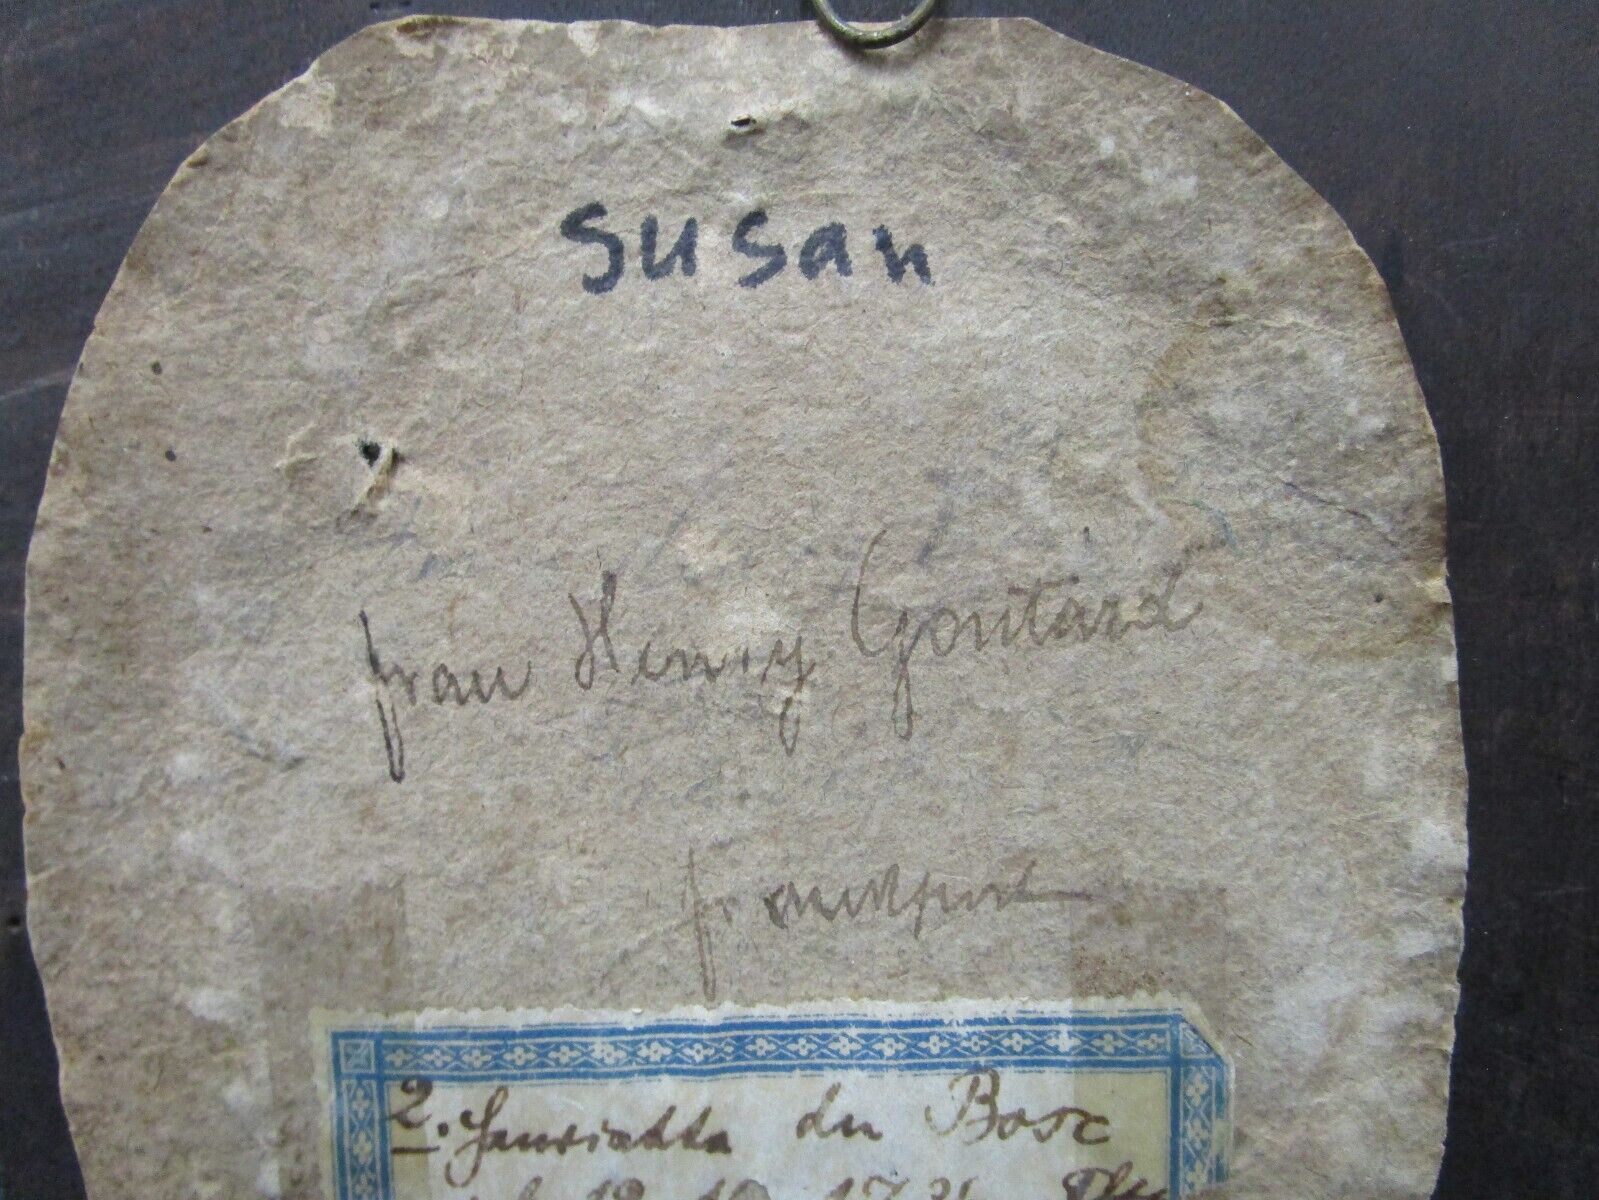 Susan
Frau Henry Gontard
Frankfurt
2. Henriette du Bosc